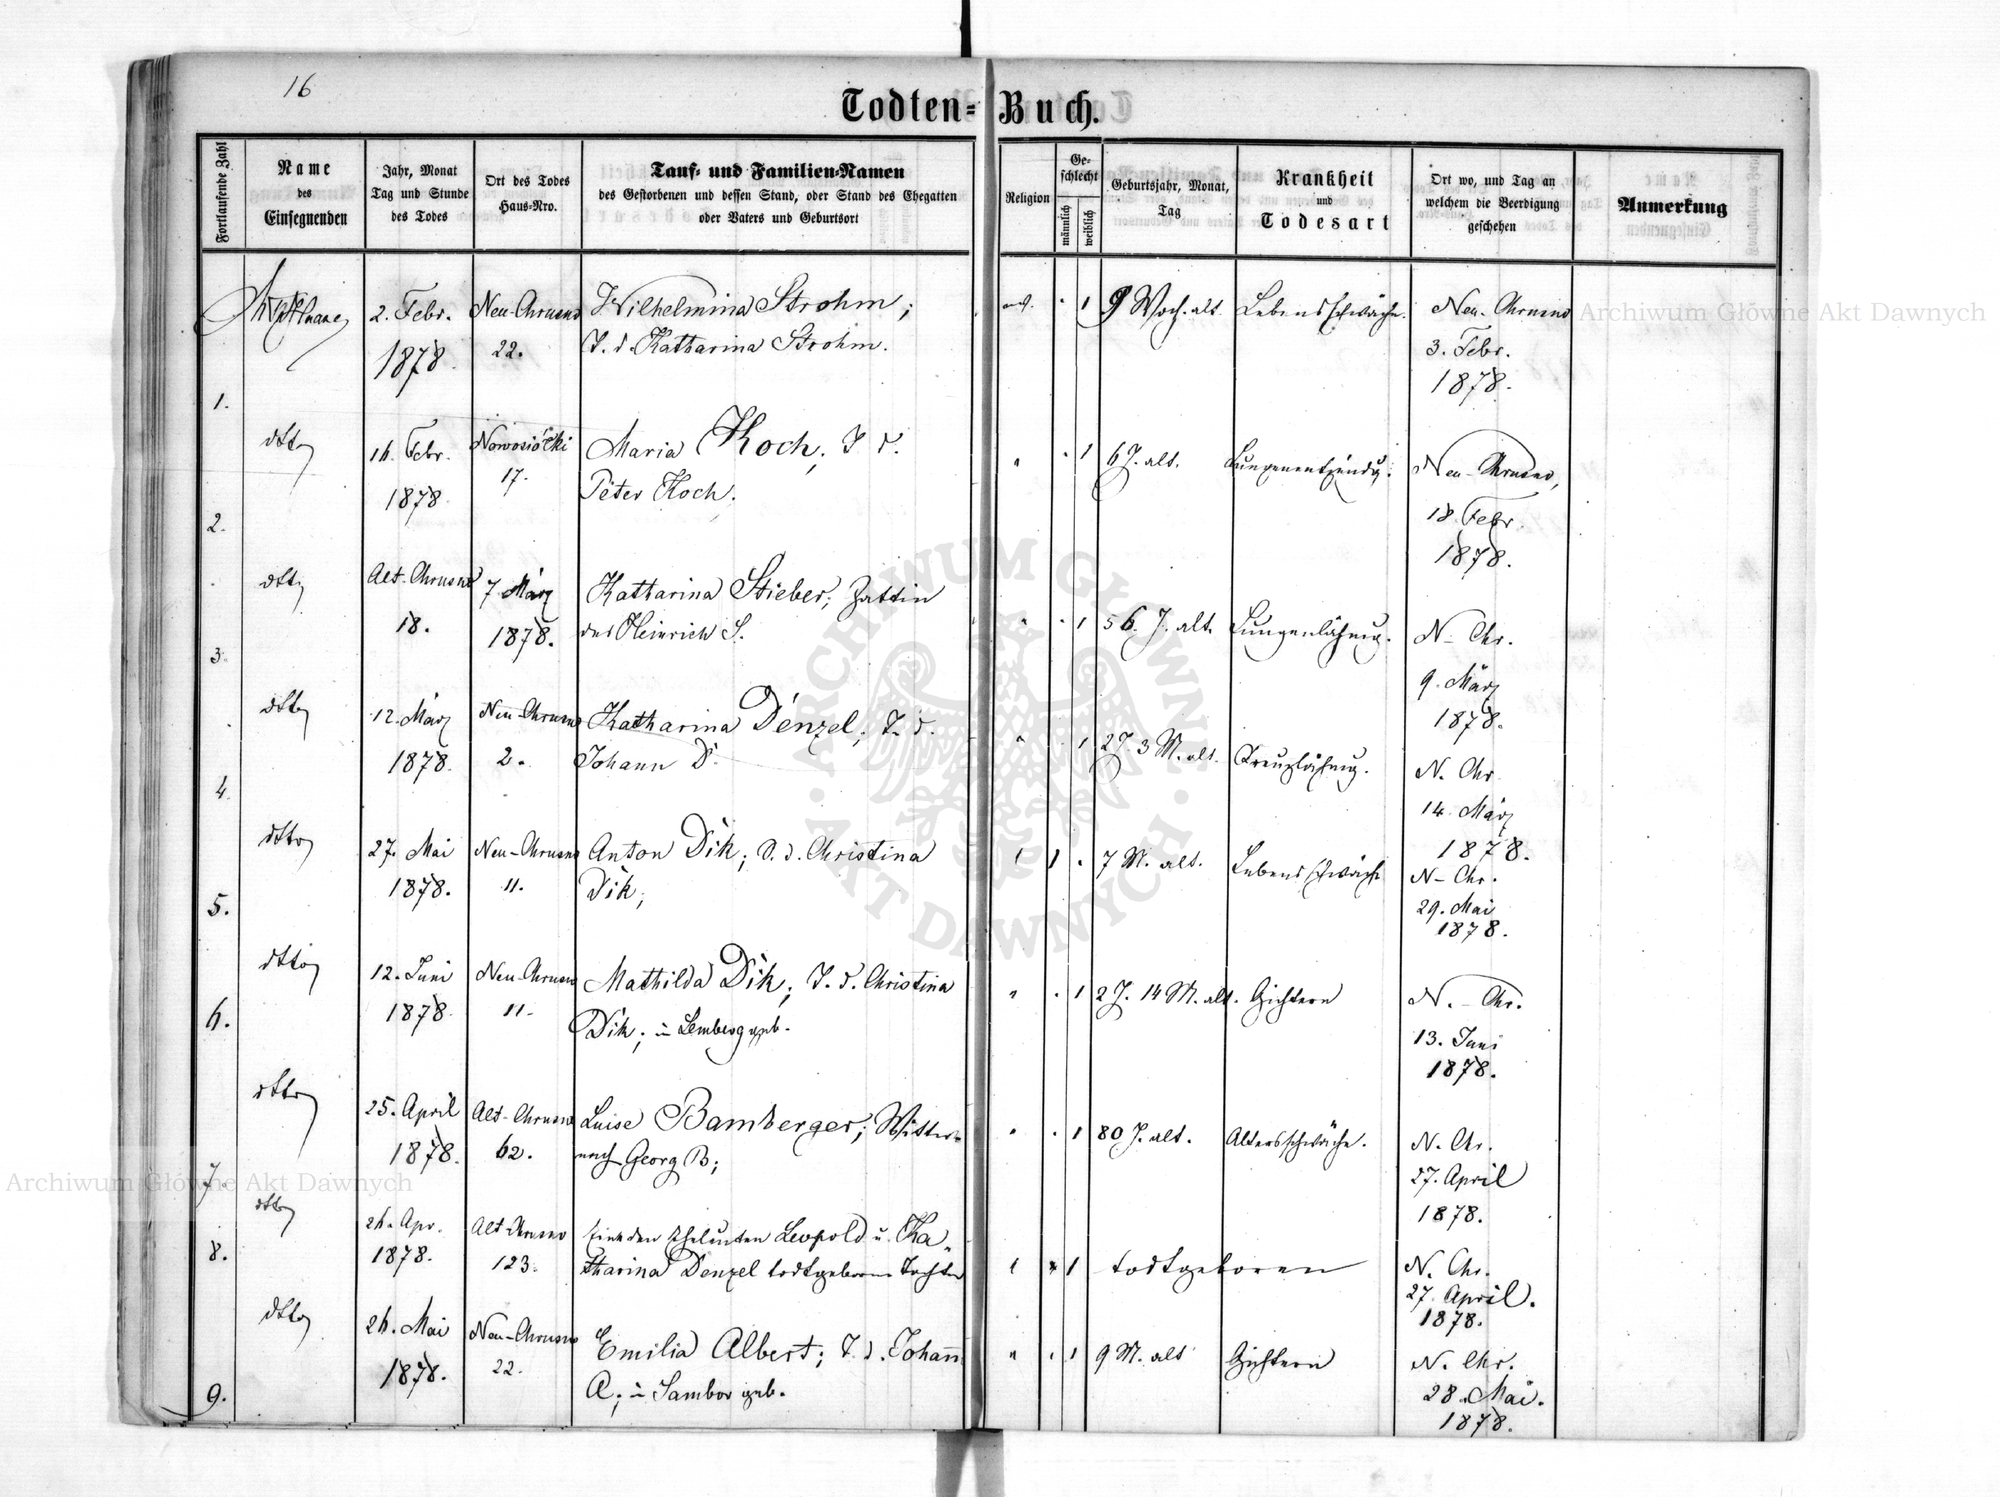 16
Todten-Buch.
Fortlaufende Zahl
Name
des
Einsegnenden
Jahr, Monat
Tag und Stunde
des Todes
Ort des Todes
Haus-Nro.
Tauf- und Familien-Namen
des Gestorbenen und dessen Stand, oder Stand des Ehegatten
oder Vaters und Geburtsort
Religion
Ge-
schlecht
männlich
weiblich
Geburtsjahr, Monat,
Tag
Krankheit
und
Todesart
Ort wo, und Tag an
welchem die Beerdigung
geschehen
Anmerkung
1.
2. Febr.
1878.
Neu-Chrusno
22.
Wilhelmina Strohm;
T. d. Katharina Strohm.
ev. · 1
9 Woch. alt.
Lebensschwäche.
Neu-Chrusno
3. Febr.
1878.
2.
dtto
16. Febr.
1878.
Nowosiółki
17.
Maria Koch; T. d.
Peter Koch.
" · 1
6 J. alt.
Lungenentzündg.
Neu-Chrusno,
18. Febr.
1878.
3.
dtto
Alt-Chrusno
18.
7 März
1878.
Katharina Stieber; Gattin
des Heinrich S.
" · 1
56. J. alt.
Lungenlähmg.
N- Chr.
9. März
1878.
4.
dtto
12. März
1878.
Neu-Chrusno
2.
Katharina Denzel; T. d.
Johann D.
" · 1
2 J. 3 M. alt.
Kreuzlähmg.
N. Chr.
14. März
1878.
5.
dtto
27. Mai
1878.
Neu-Chrusno
11.
Anton Dik; S. d. Christina
Dik;
" 1 ·
7 M. alt.
Lebensschwäche
N- Chr.
29. Mai
1878.
6.
dtto
12. Juni
1878.
Neu-Chrusno
11.
Mathilda Dik; T. d. Christina
Dik; in Lemberg geb.
" · 1
2 J. 14 M. alt.
Gichtern
N.- Chr.
13. Juni
1878.
7.
dtto
25. April
1878.
Alt-Chrusno
62.
Luise Bamberger; Wittwe
nach Georg B;
" · 1
80 J. alt.
Altersschwäche.
N. Chr.
27. April
1878.
8.
dtto
26. Apr.
1878.
Alt-Chrusno
123.
Eine den Eheleuten Leopold u. Ka
tharina Denzel todtgeborene Tochter
" · 1
todtgeboren
N. Chr.
27. April.
1878.
9.
dtto
26. Mai
1878.
Neu-Chrusno
22.
Emilia Albert; T. d. Johann
A; in Sambor geb.
" · 1
9 M. alt
Gichtern
N. Chr.
28. Mai.
1878.
Archiwum Główne Akt Dawnych
Archiwum Główne Akt Dawnych
ARCHIWUM GŁÓWNE · AKT DAWNYCH ·